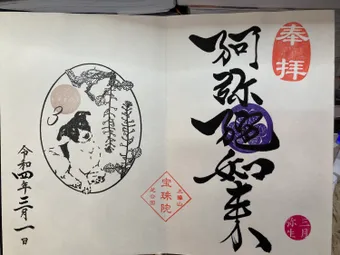 奉拝
阿弥陀如来
三月
弥生
宝珠院
令和四年三月一日